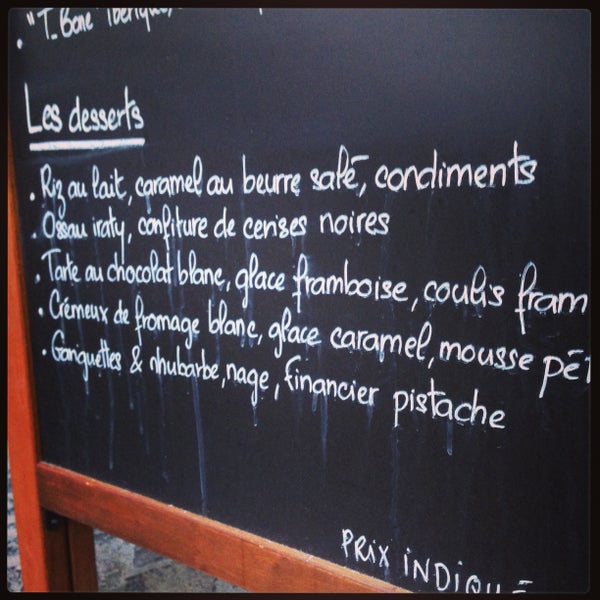 . "T. Bone" Ibérique,
Les desserts
. Riz au lait, caramel au beurre salé, condiments
. Ossau iraty, confiture de cerises noires
. Tarte au chocolat blanc, glace framboise, coulis fram
. Crémeux de fromage blanc, glace caramel, mousse pét
. Gariguettes & rhubarbe, nage, financier pistache
PRIX INDIQUÉ